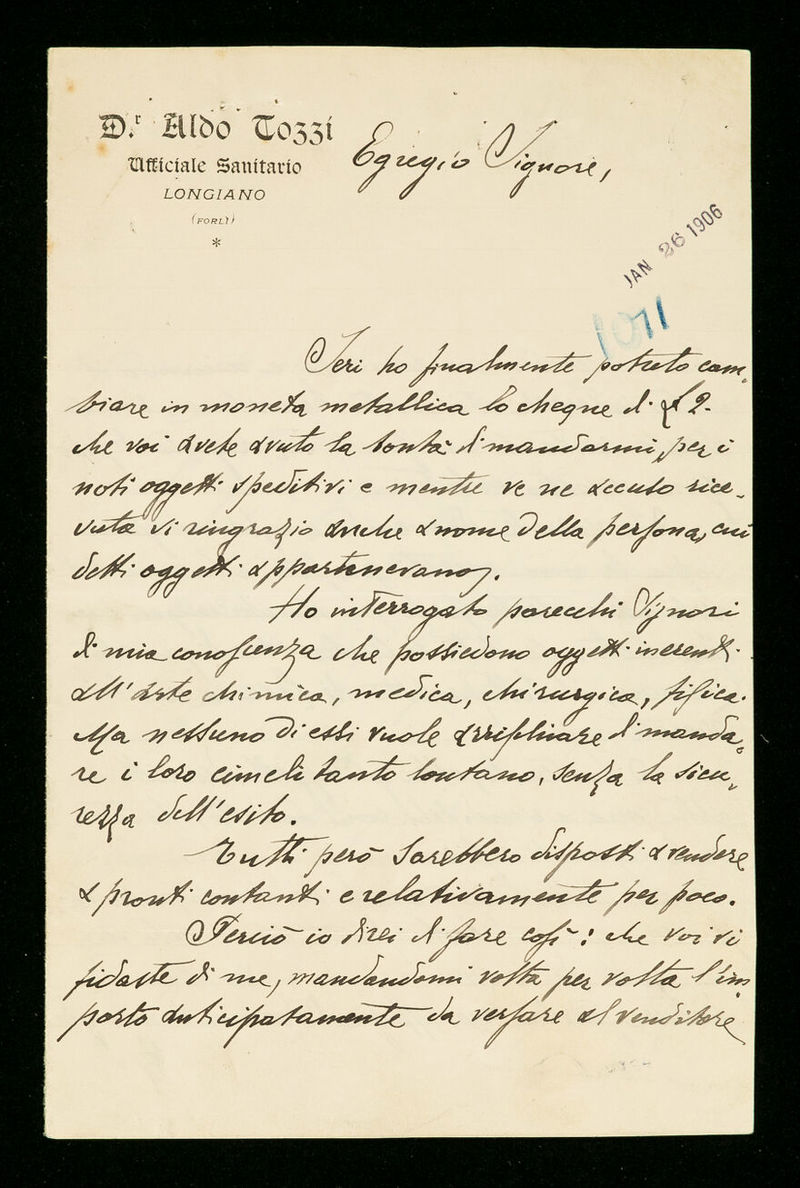 D.r Aldo Tozzi
Ufficiale Sanitario
LONGIANO
(FORLÌ)
*
Egregio Signore,
JAN 26 1906
1011
Ieri ho finalmente potuto cam-
biare in moneta metallica lo cheque di £ 2.
che voi avete avuto la bontà di mandarmi, per i
noti oggetti speditivi e mentre ve ne accuso rice-
vuta vi ringrazio anche a nome della persona, cui
detti oggetti appartenevano.
Ho interrogato parecchi Signori
di mia conoscenza che possiedono oggetti inerenti
all'arte chimica, medica, chirurgica, fisica.
Ma nessuno di essi vuole arrischiare di manda-
re i loro cimeli tanto lontano, senza la sicu-
rezza dell'esito.
Tutti però sarebbero disposti a vendere
a pronti contanti e relativamente per poco.
Perciò io direi di fare così: che voi vi
fidaste di me, mandandomi volta per volta l'im
porto anticipatamente da versare al venditore